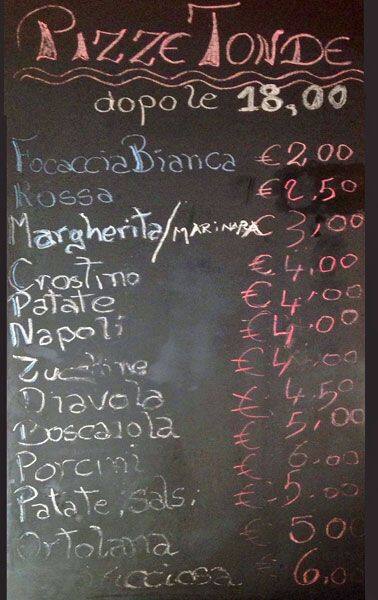 PIZZE TONDE
dopo le 18,00
Focaccia Bianca € 2,00
Rossa € 2,50
Margherita/MARINARA € 3,00
Crostino € 4,00
Patate € 4,00
Napoli € 4,00
Zucchine € 4,00
Diavola € 4,50
Boscaiola € 5,00
Porcini € 6,00
Patate, Sals. € 5,00
Ortolana € 5,00
€ 6,00